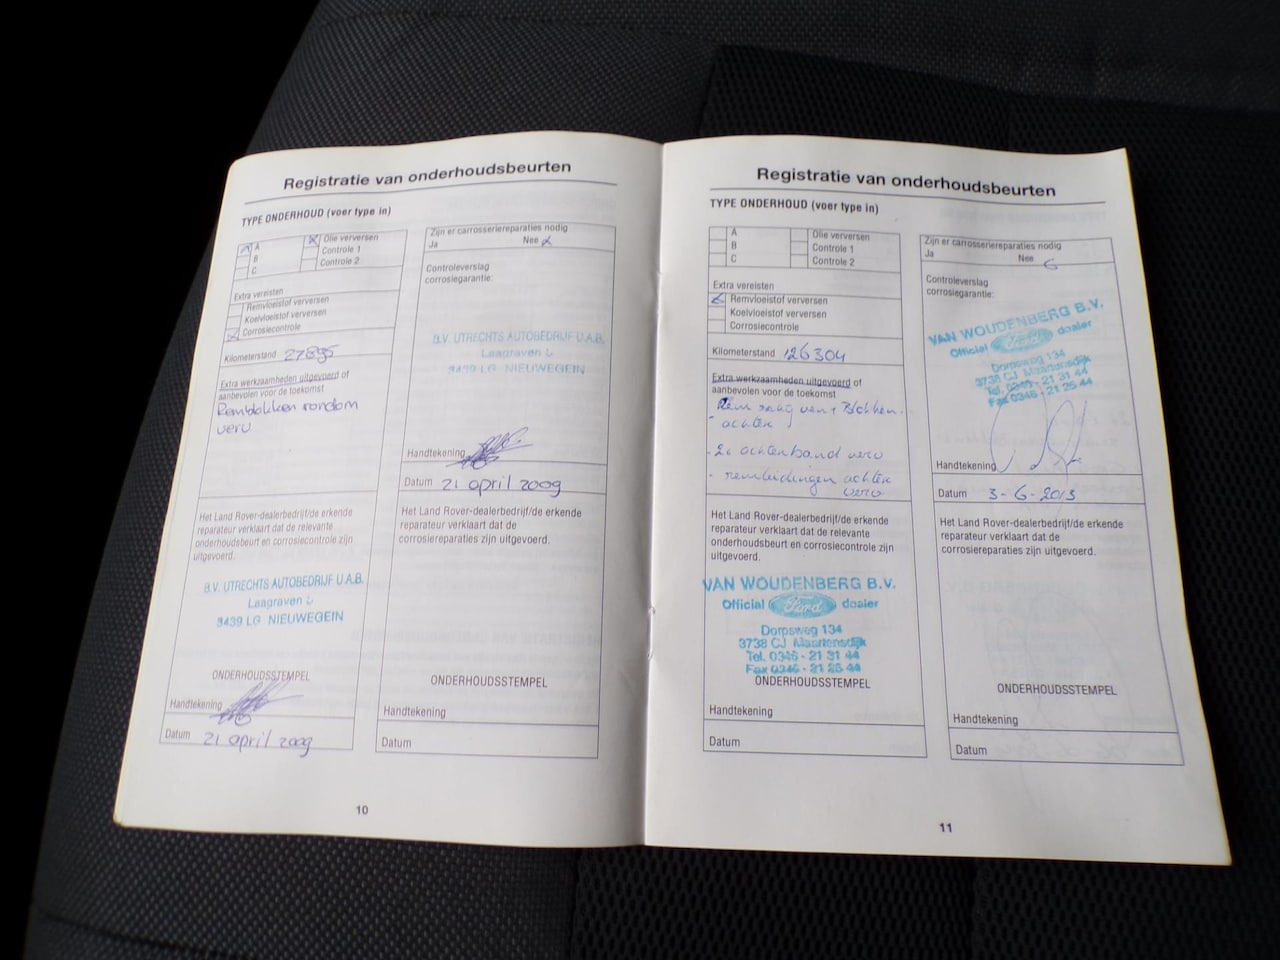 Registratie van onderhoudsbeurten
TYPE ONDERHOUD (voer type in)
A
B
C
Olie verversen
Controle 1
Controle 2
Extra vereisten
Remvloeistof verversen
Koelvloeistof verversen
Corrosiecontrole
Kilometerstand
Extra werkzaamheden uitgevoerd of
aanbevolen voor de toekomst
Remblokken rondom
verv
Het Land Rover-dealerbedrijf/de erkende
reparateur verklaart dat de relevante
onderhoudsbeurt en corrosiecontrole zijn
uitgevoerd.
B.V. UTRECHTS AUTOBEDRIJF U.A.B.
Laagraven
3439 LG NIEUWEGEIN
ONDERHOUDSSTEMPEL
Handtekening
Datum 21 april 2009
Zijn er carrosseriereparaties nodig
Ja Nee
Controleverslag
corrosiegarantie:
B.V. UTRECHTS AUTOBEDRIJF U.A.B.
Laagraven
3439 LG NIEUWEGEIN
Handtekening
Datum 21 april 2009
Het Land Rover-dealerbedrijf/de erkende
reparateur verklaart dat de
corrosiereparaties zijn uitgevoerd.
ONDERHOUDSSTEMPEL
Handtekening
Datum
10
Registratie van onderhoudsbeurten
TYPE ONDERHOUD (voer type in)
A
B
C
Olie verversen
Controle 1
Controle 2
Extra vereisten
Remvloeistof verversen
Koelvloeistof verversen
Corrosiecontrole
Kilometerstand 126304
Extra werkzaamheden uitgevoerd of
aanbevolen voor de toekomst
achter
achterband verv
- remleidingen achter
verv
Het Land Rover-dealerbedrijf/de erkende
reparateur verklaart dat de relevante
onderhoudsbeurt en corrosiecontrole zijn
uitgevoerd.
VAN WOUDENBERG B.V.
Official Ford dealer
Dorpsweg 134
3738 CJ Maartensdijk
Tel. 0346 - 21 31 44
Fax 0346 - 21 25 44
ONDERHOUDSSTEMPEL
Handtekening
Datum
Zijn er carrosseriereparaties nodig
Ja Nee
Controleverslag
corrosiegarantie:
VAN WOUDENBERG B.V.
Official Ford dealer
Dorpsweg 134
3738 CJ Maartensdijk
Tel. 0346 - 21 31 44
Fax 0346 - 21 25 44
Handtekening
Datum 3-6-2013
Het Land Rover-dealerbedrijf/de erkende
reparateur verklaart dat de
corrosiereparaties zijn uitgevoerd.
ONDERHOUDSSTEMPEL
Handtekening
Datum
11